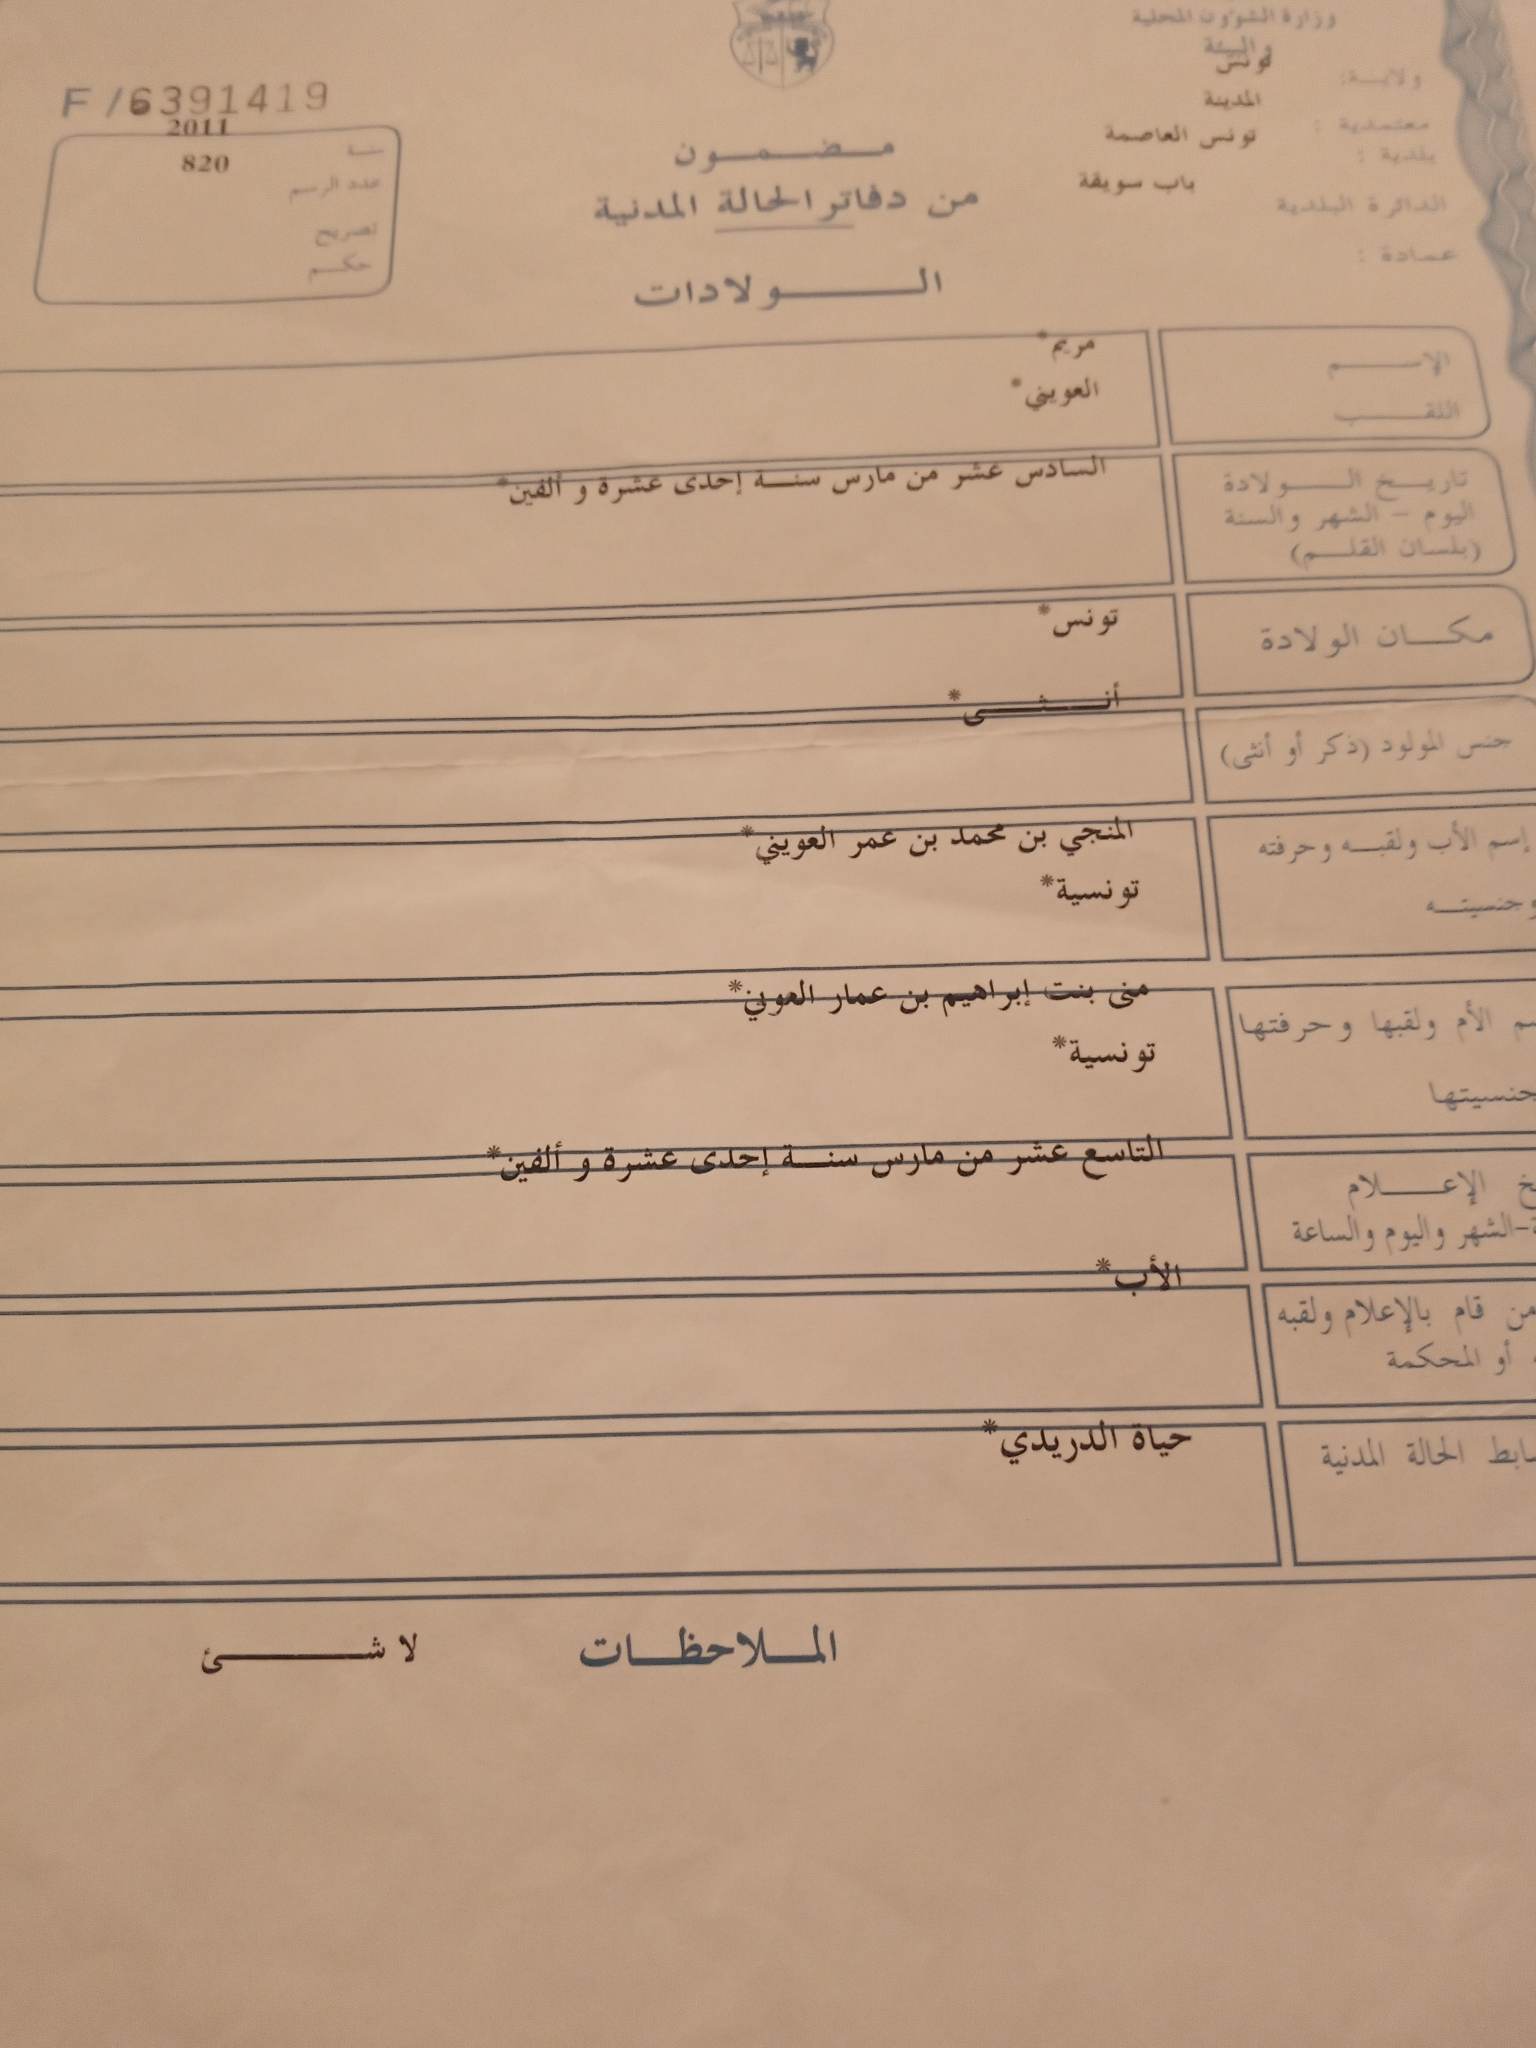 وزارة الشؤون المحلية
والبيئة
ولاية: تونس
معتمدية : المدينة
بلدية : تونس العاصمة
الدائرة البلدية باب سويقة
عمادة :
F /6391419
سنة 2011
عدد الرسم 820
تصريح
حكم
مضمون
من دفاتر الحالة المدنية
الولادات
الإسم مريم*
اللقب العويني*
تاريخ الولادة السادس عشر من مارس سنة إحدى عشرة و ألفين*
اليوم - الشهر والسنة
(بلسان القلم)
مكان الولادة تونس*
جنس المولود (ذكر أو أنثى) أنثى*
إسم الأب ولقبه وحرفته المنجي بن محمد بن عمر العويني*
وجنسيته تونسية*
الأم ولقبها وحرفتها منى بنت إبراهيم بن عمار العوني*
جنسيتها تونسية*
الإعلام التاسع عشر من مارس سنة إحدى عشرة و ألفين*
الشهر واليوم والساعة
من قام بالإعلام ولقبه الأب*
أو المحكمة
الحالة المدنية حياة الدريدي*
الملاحظات لا شئ